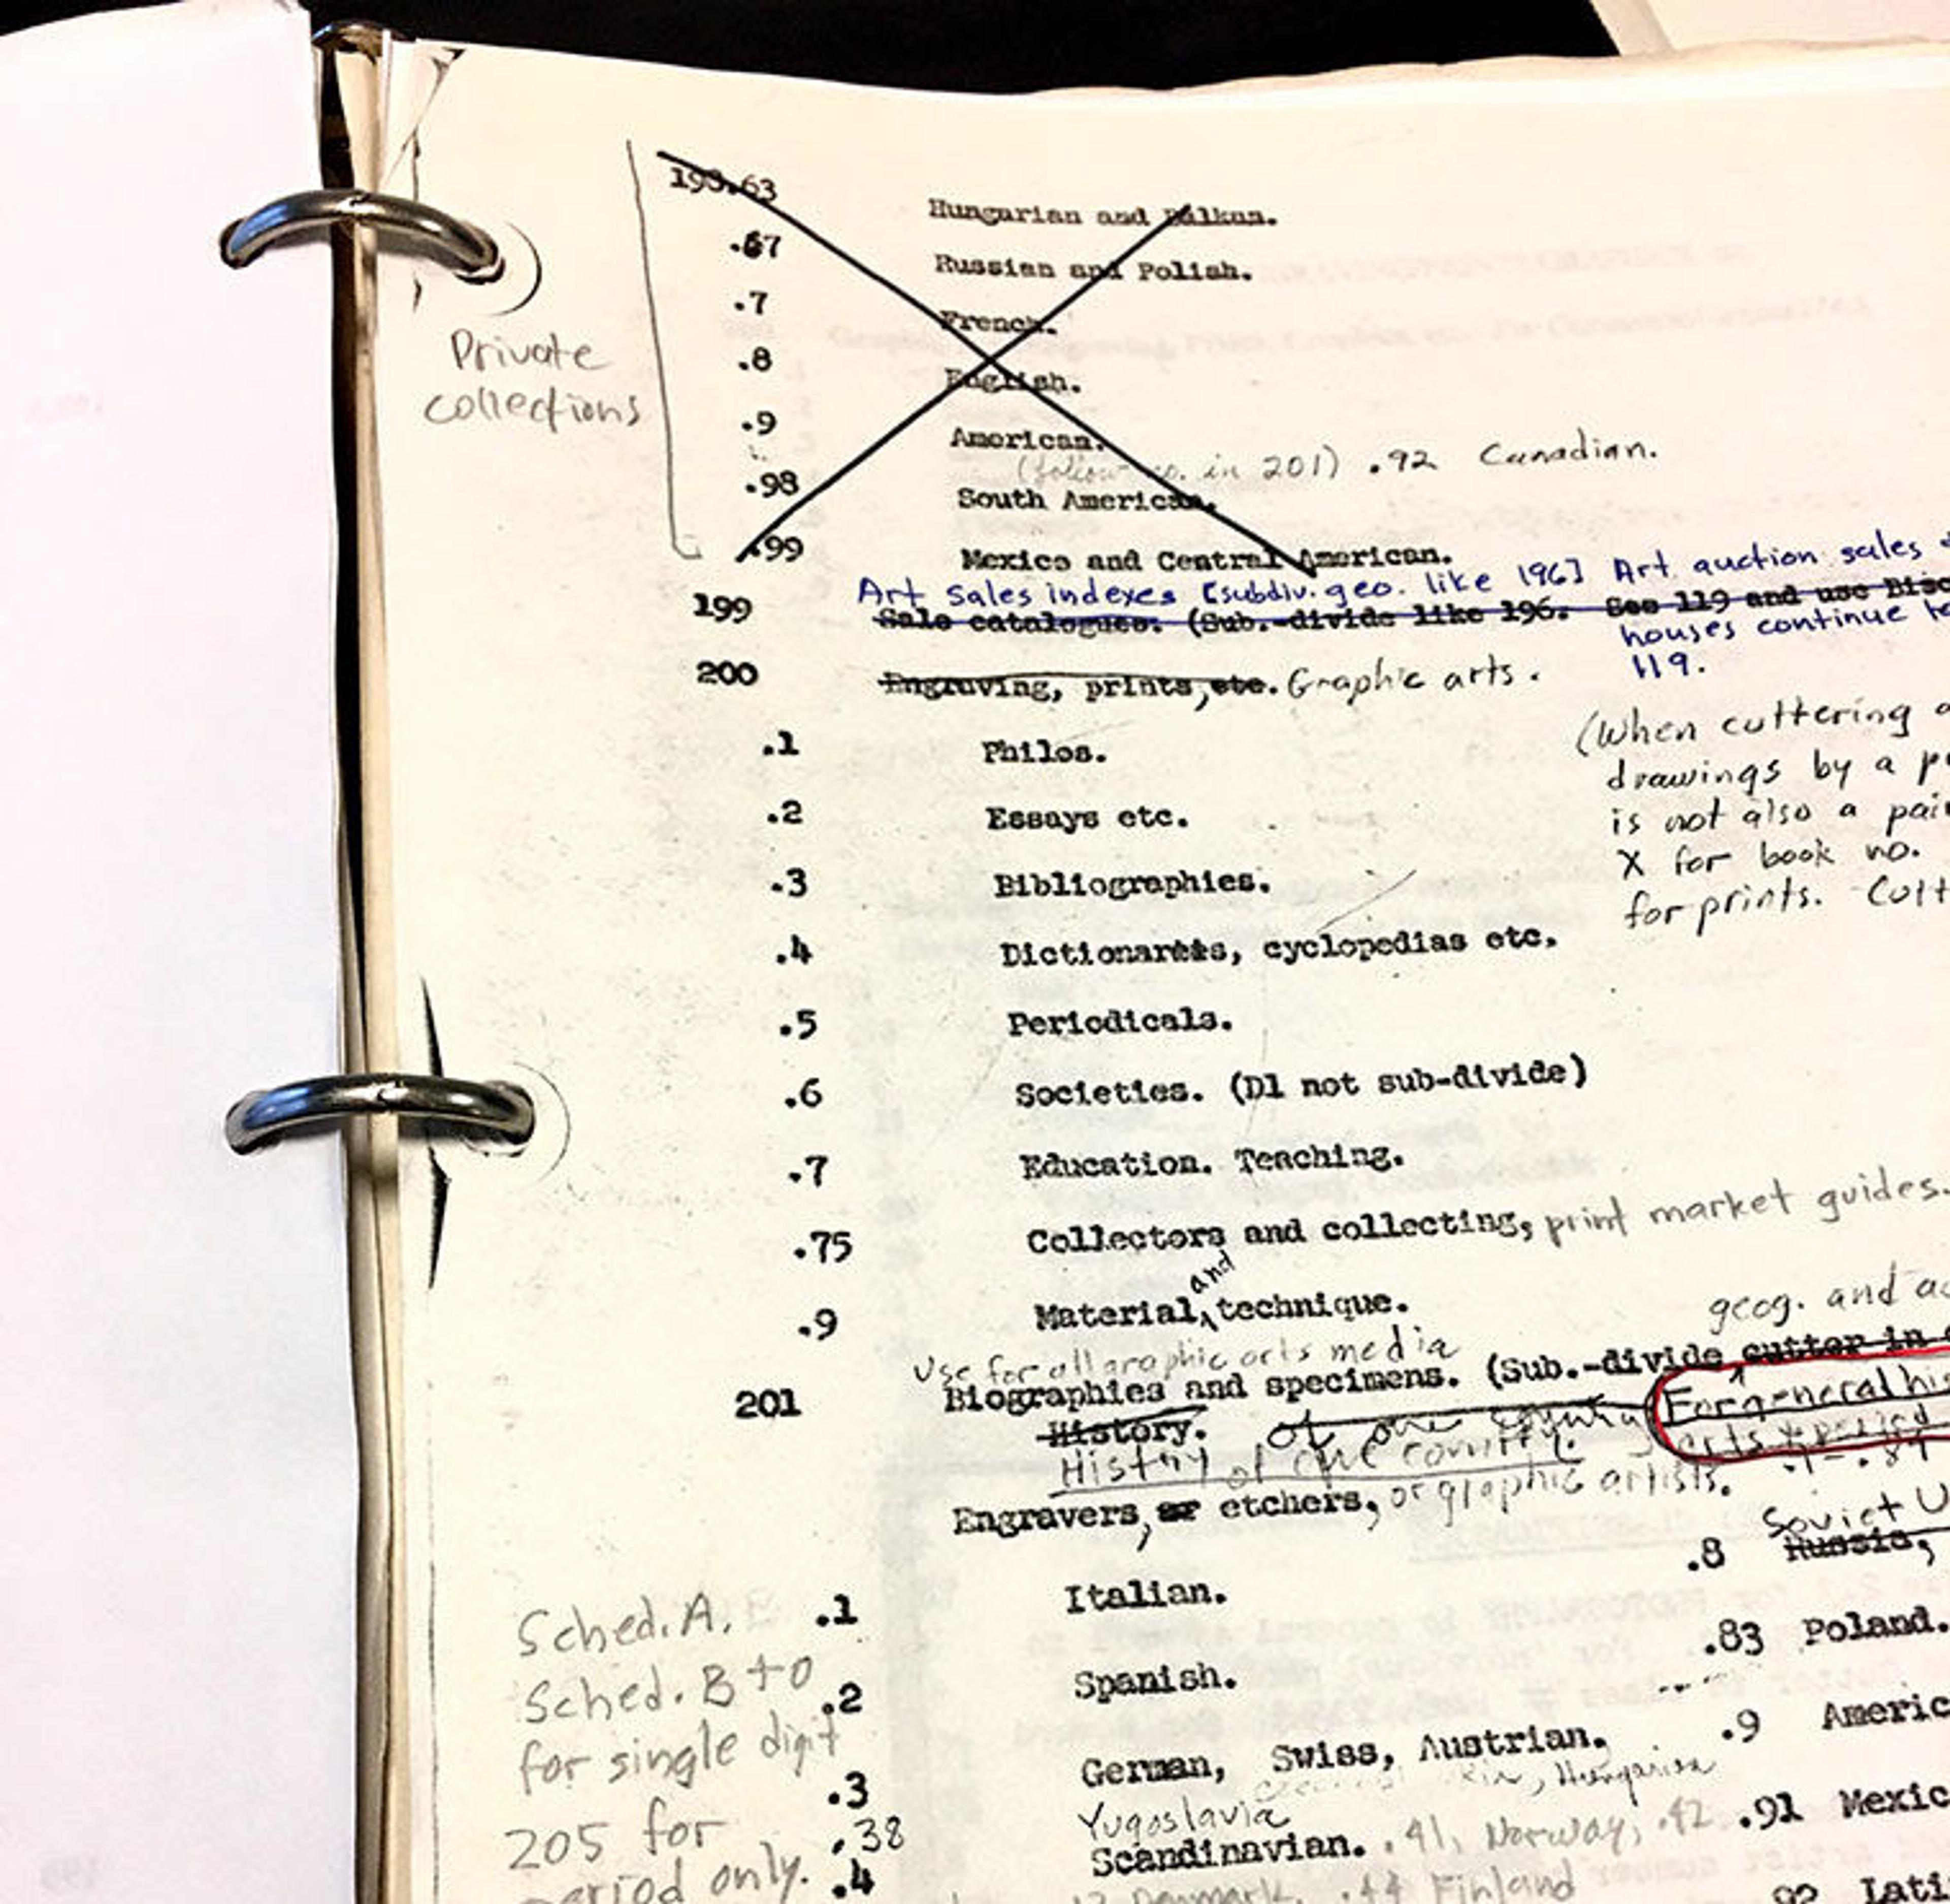 198.63 Hungarian and Balkan.
.67 Russian and Polish.
.7 French.
Private
.8 English.
collections
.9 American.
(follow in 201) .92 Canadian.
.98 South American.
.99 Mexico and Central American.
Art sales indexes [subdiv. geo. like 196] Art auction sales
199 Sale catalogues. (Sub.-divide like 196. See 119 and use
houses continue
119.
200 Engraving, prints, etc. Graphic arts.
(When cuttering
.1 Philos.
drawings by a
is not also a
.2 Essays etc.
X for book no.
for prints.
.3 Bibliographies.
.4 Dictionaries, cyclopedias etc.
.5 Periodicals.
.6 Societies. (D1 not sub-divide)
.7 Education. Teaching.
.75 Collectors and collecting, print market guides.
.9 Material and technique.
geog. and
Use for all graphic arts media
201 Biographies and specimens. (Sub.-divide cutter in
For general
History. of one country
arts
History of one country.
Engravers, or etchers, or graphic artists.
Soviet
.8 Russia,
Sched. A. .1 Italian.
.83 Poland.
Sched. B + O
.2 Spanish.
for single digit
.9
.3 German, Swiss, Austrian.
Hungarian
205 for
.38 Yugoslavia
.91
period only.
.4 Scandinavian. .41, Norway, .42
Denmark, .44 Finland